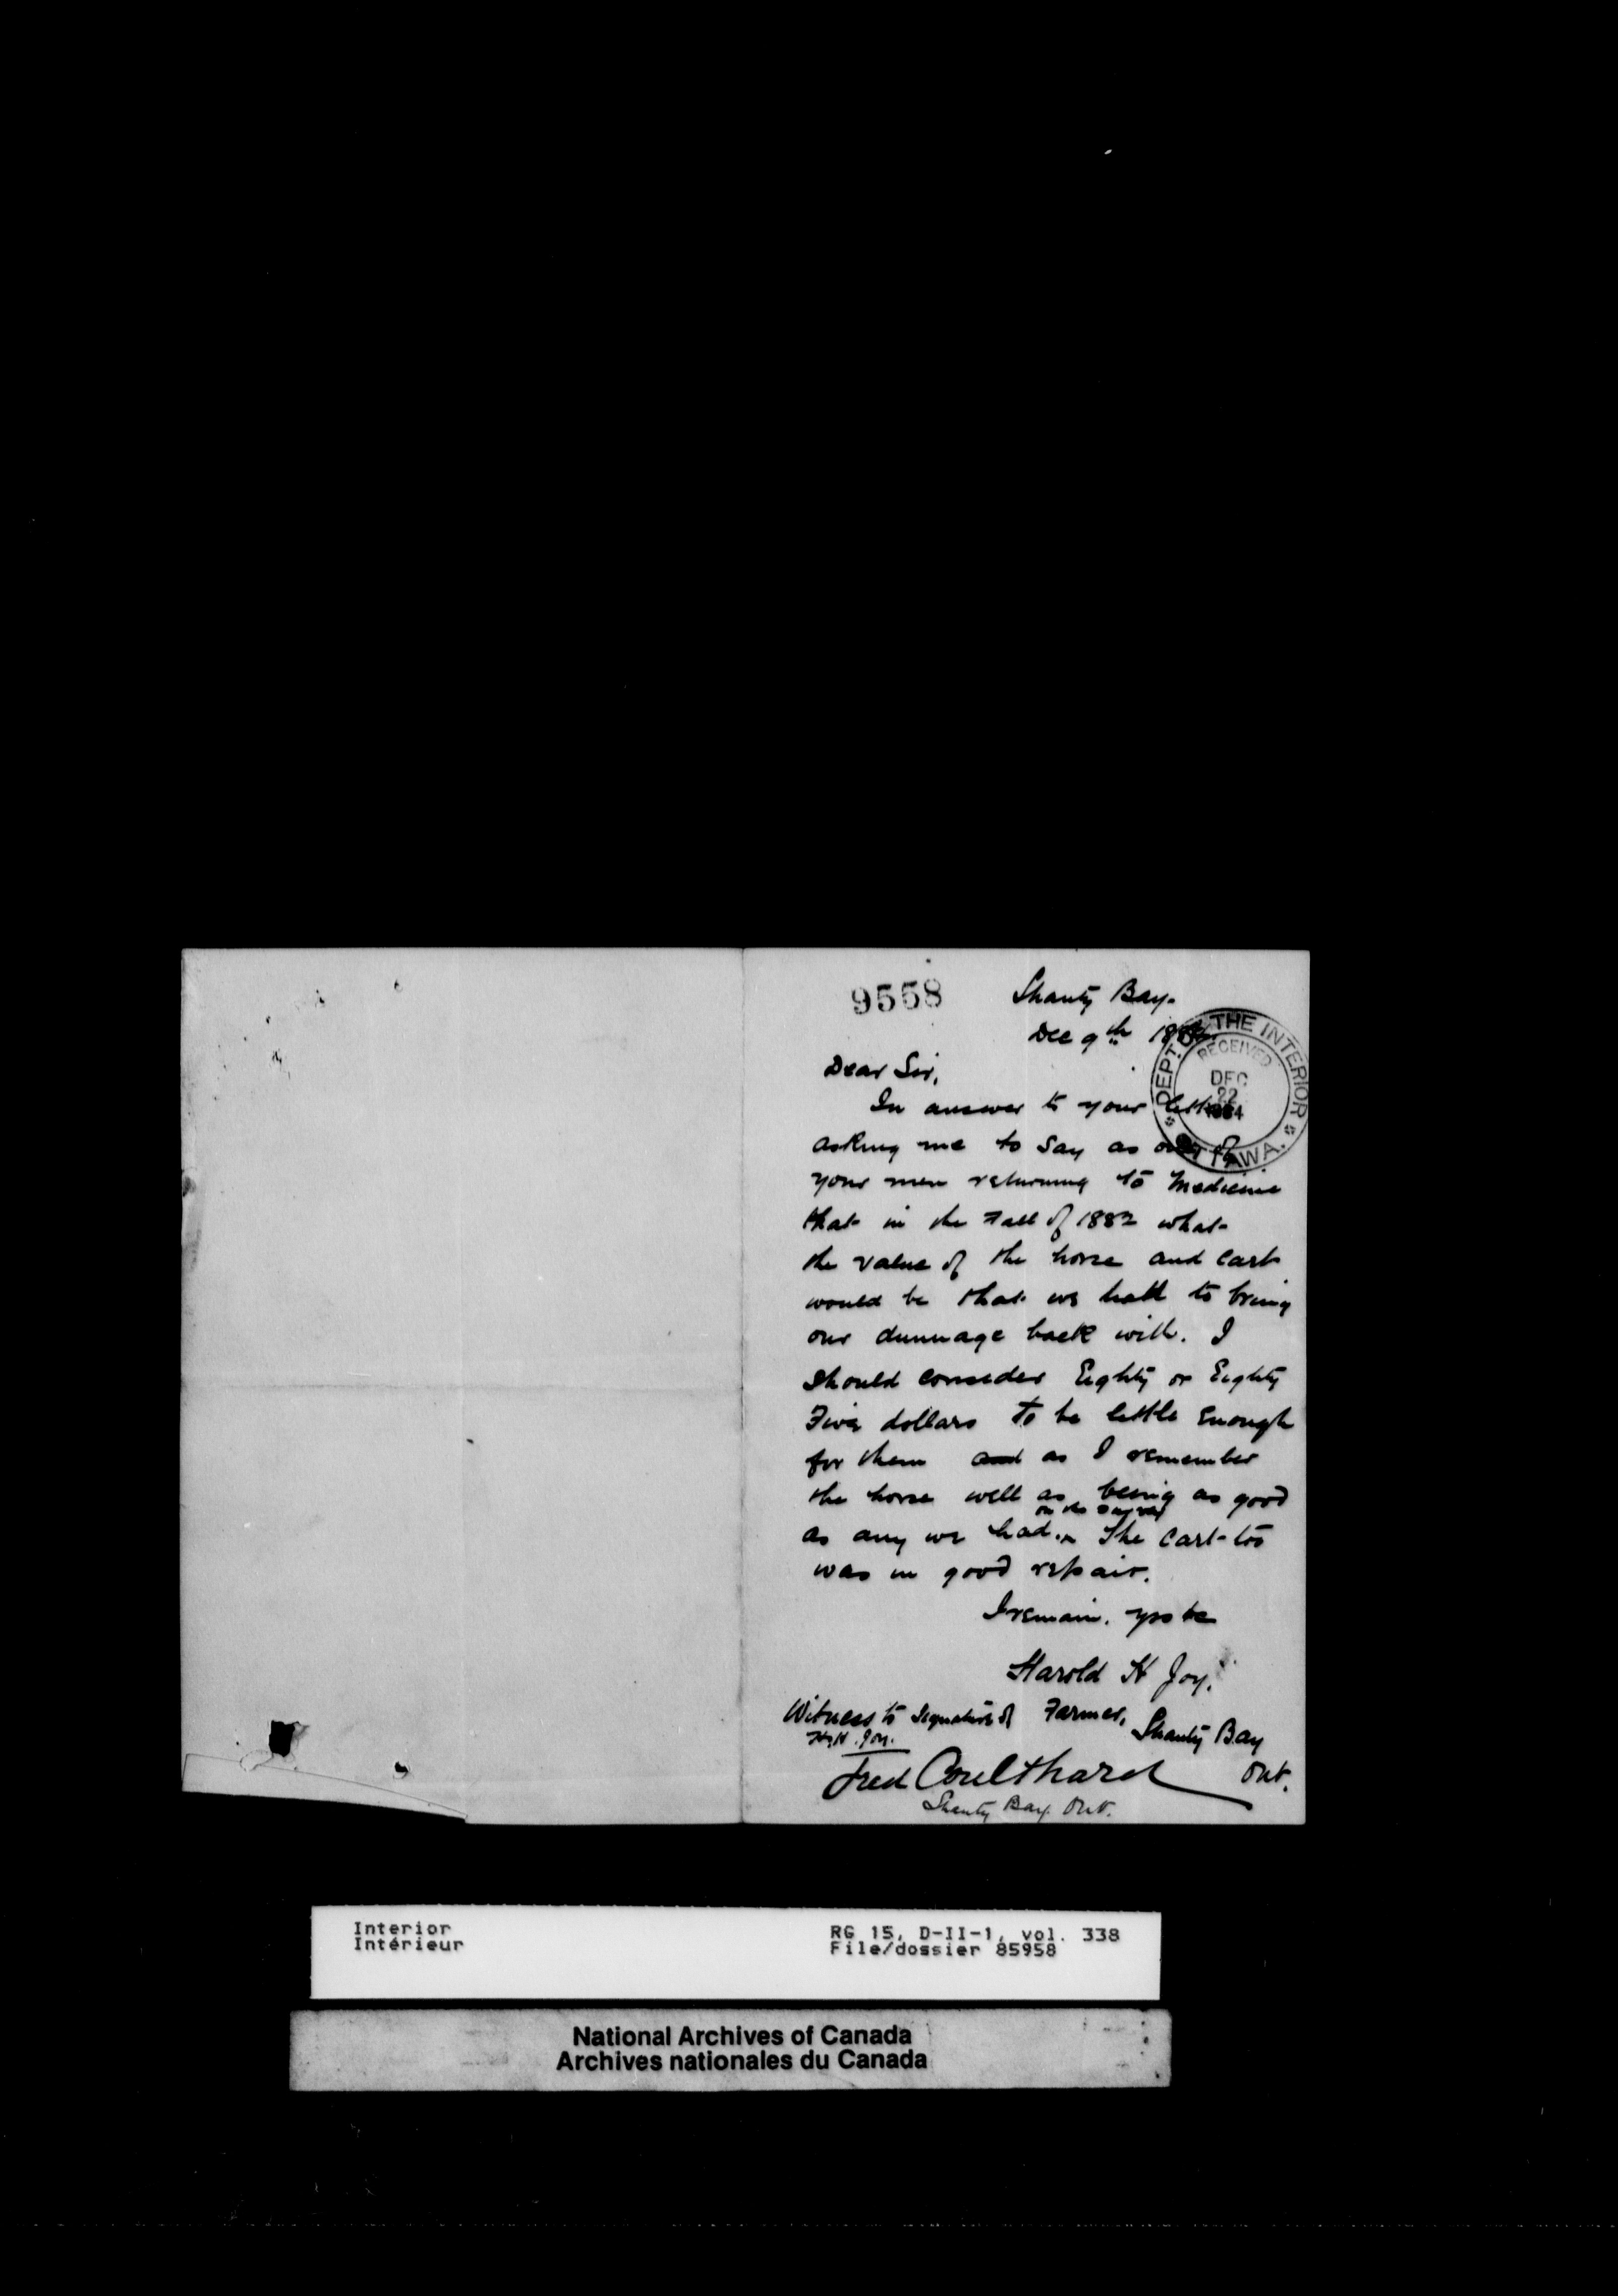 9558
Shanty Bay.
Dec 9th 1884
DEPT. OF THE INTERIOR
RECEIVED
DEC
22
1884
OTTAWA.
Dear Sir,
In answer to your letter
asking me to say as one of
your men returning to Medicine
that in the Fall of 1882 what
the value of the horse and cart
would be that we had to bring
our dunnage back with. I
should consider Eighty or Eighty
Five dollars to be little enough
for them and as I remember
the horse well as being as good
on the survey
as any we had. The cart too
was in good repair.
I remain. yrs &c
Harold H Joy.
Witness to signature of Farmer,
H. H. Joy. Shanty Bay
Fred Coulthard Ont.
Shanty Bay. Ont.
Interior RG 15, D-II-1, vol. 338
Intérieur File/dossier 85958
National Archives of Canada
Archives nationales du Canada